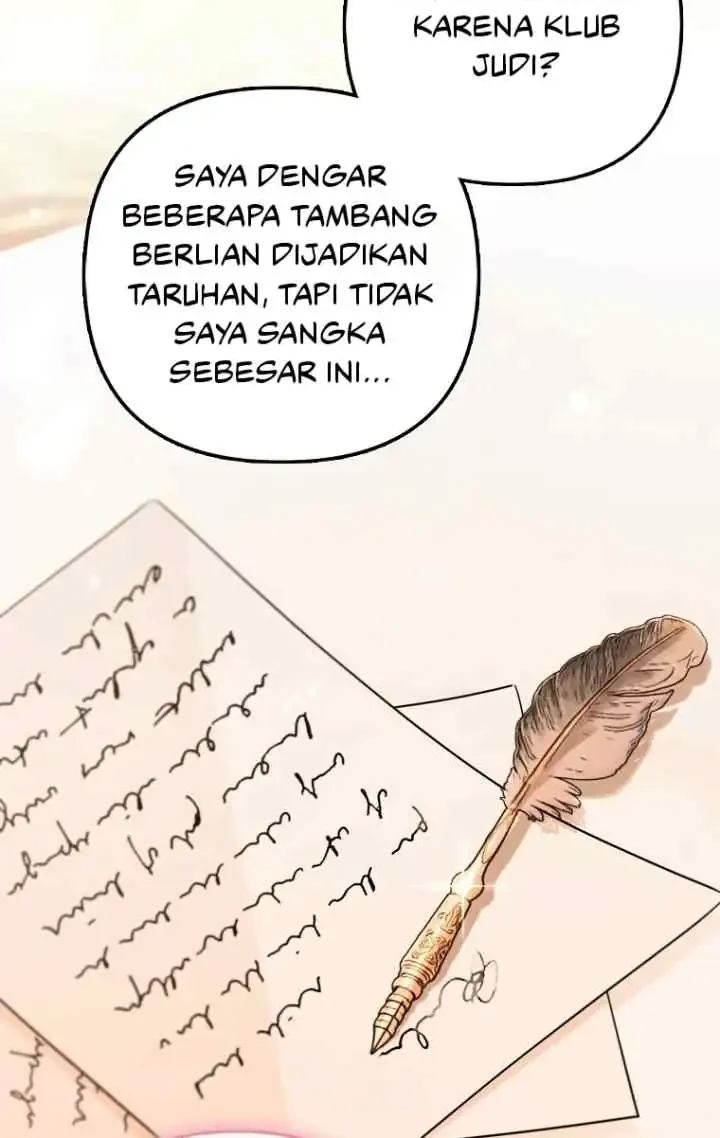 KARENA KLUB
JUDI?
SAYA DENGAR
BEBERAPA TAMBANG
BERLIAN DIJADIKAN
TARUHAN, TAPI TIDAK
SAYA SANGKA
SEBESAR INI...